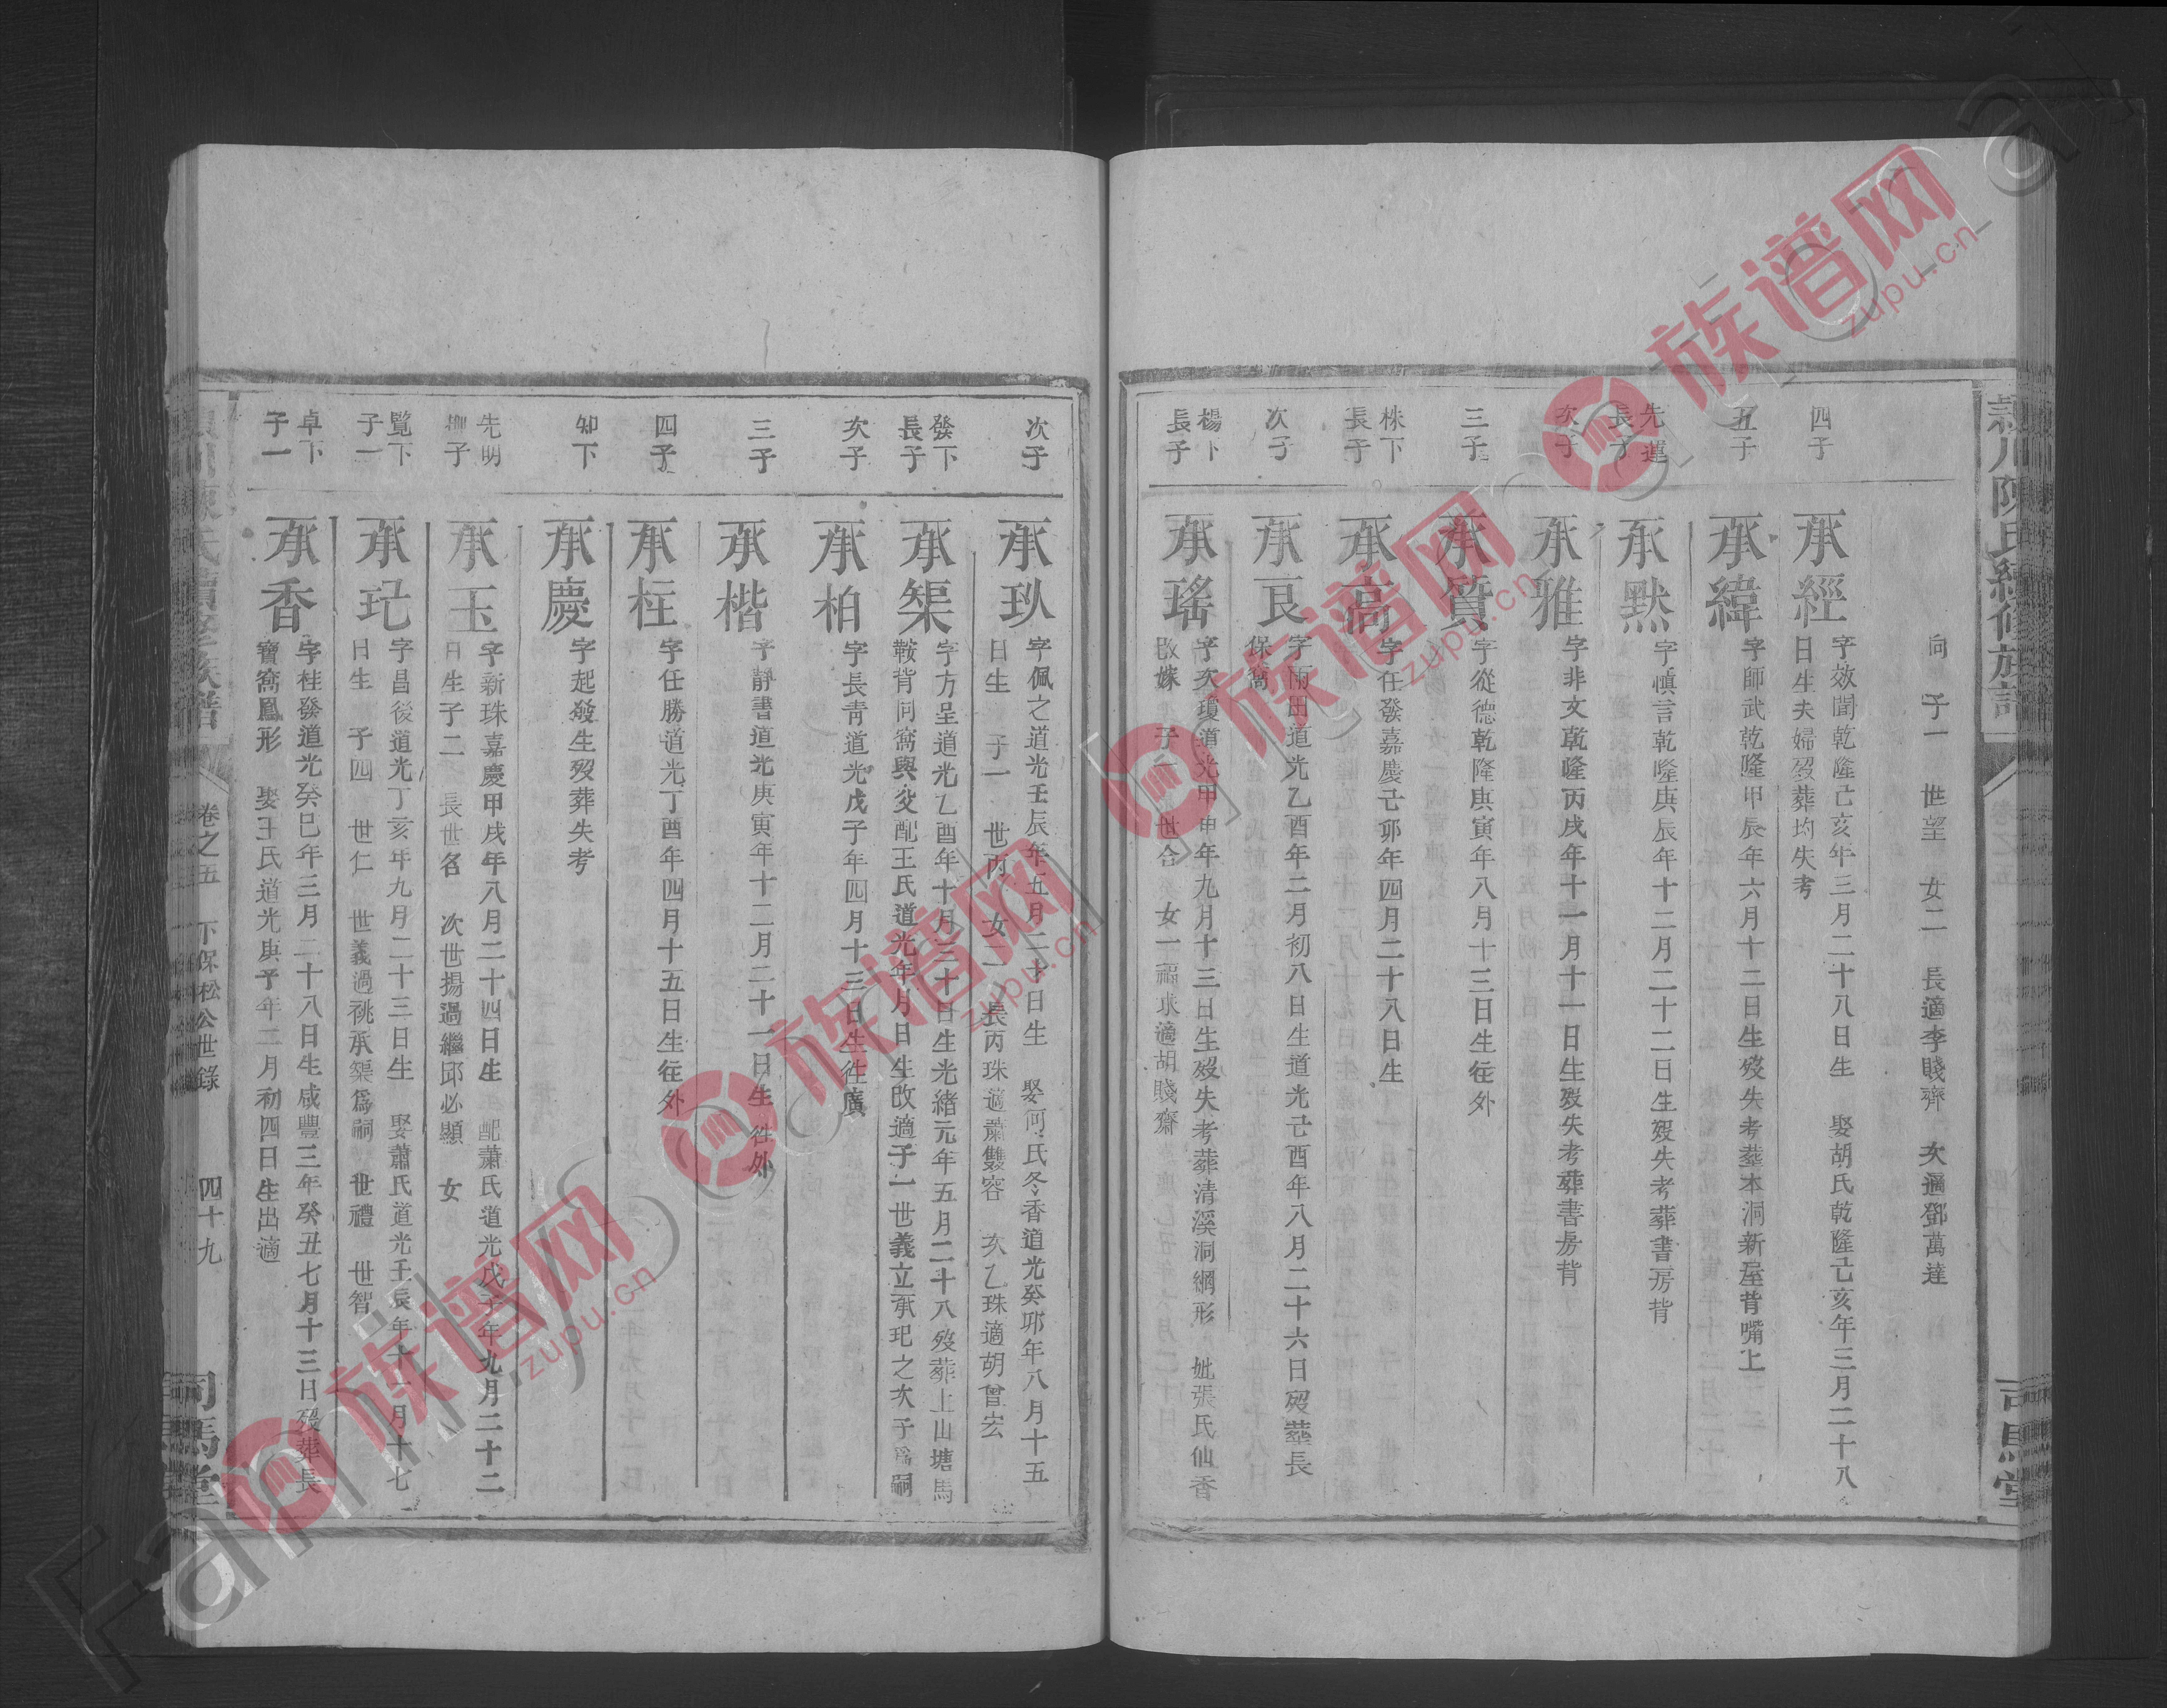 向　子一　世望　女二　長適李賤齊　次適鄧萬達
四子
承經
字效聞乾隆己亥年三月二十八日生　娶胡氏乾隆己亥年三月二十八
日生夫婦歿葬均失考
五子
承緯
字師武乾隆甲辰年六月十二日生歿失考葬本洞新屋背嘴上
先運
長子
承默
字慎言乾隆庚辰年十二月二十二日生歿失考葬書房背
次子
承雅
字非文乾隆丙戌年十一月十一日生歿失考葬書房背
三子
承質
字從德乾隆庚寅年八月十三日生徃外
株下
長子
承高
字任發嘉慶己卯年四月二十八日生
次子
承良
字雨田道光乙酉年二月初八日生道光己酉年八月二十六日歿葬長
保窩
楊下
長子
承瑤
字次瓊道光甲申年九月十三日生歿失考葬清溪洞網形　妣張氏仙香
改嫁　子一　世合　女一福求適胡賤齋
次子
承玖
字佩之道光壬辰年五月二十日生　娶何氏冬香道光癸卯年八月十五
日生　子一　世丙　女二　長丙珠適蕭雙容　次乙珠適胡曾宏
發下
長子
承榘
字方呈道光乙酉年十月三十日生光緒元年五月二十八歿葬上山塘馬
鞍背同窩與父配王氏道光年月日生改適子一世義立承玘之次子爲嗣
次子
承柏
字長青道光戊子年四月十三日生徃廣
三子
承楷
字靜書道光庚寅年十二月二十一日生徃外
四子
承柱
字任勝道光丁酉年四月十五日生徃外
知下
承慶
字起發生歿葬失考
先明
承玉
字新珠嘉慶甲戌年八月二十四日生　配蕭氏道光戊子年九月二十二
日生子二　長世名　次世揚過繼邱必顯　女
覽下
子一
承玘
字昌後道光丁亥年九月二十三日生　娶蕭氏道光壬辰年十一月十七
日生　子四　世仁　世義過祧承榘爲嗣　世禮　世智
卓下
子一
承香
字桂發道光癸巳年三月二十八日生咸豐三年癸丑七月十三日歿葬長
寶窩鳳形　娶王氏道光庚子年二月初四日生出適
卷之五　下保松公世錄　四十九
司馬堂
族谱网
zupu.cn